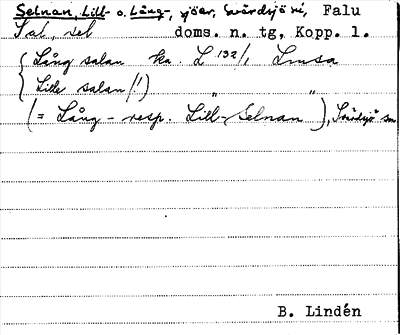 Selnan, Lill- o. Lång-, sjöar, Svärdsjö sn, Falu
Sal, sel doms. n. tg, Kopp. l.
Lång salan ka. L 132/1 Lmsa
Lille salan (!) " "
(= Lång- resp. Lill-Selnan), Svärdsjö sn
B. Lindén